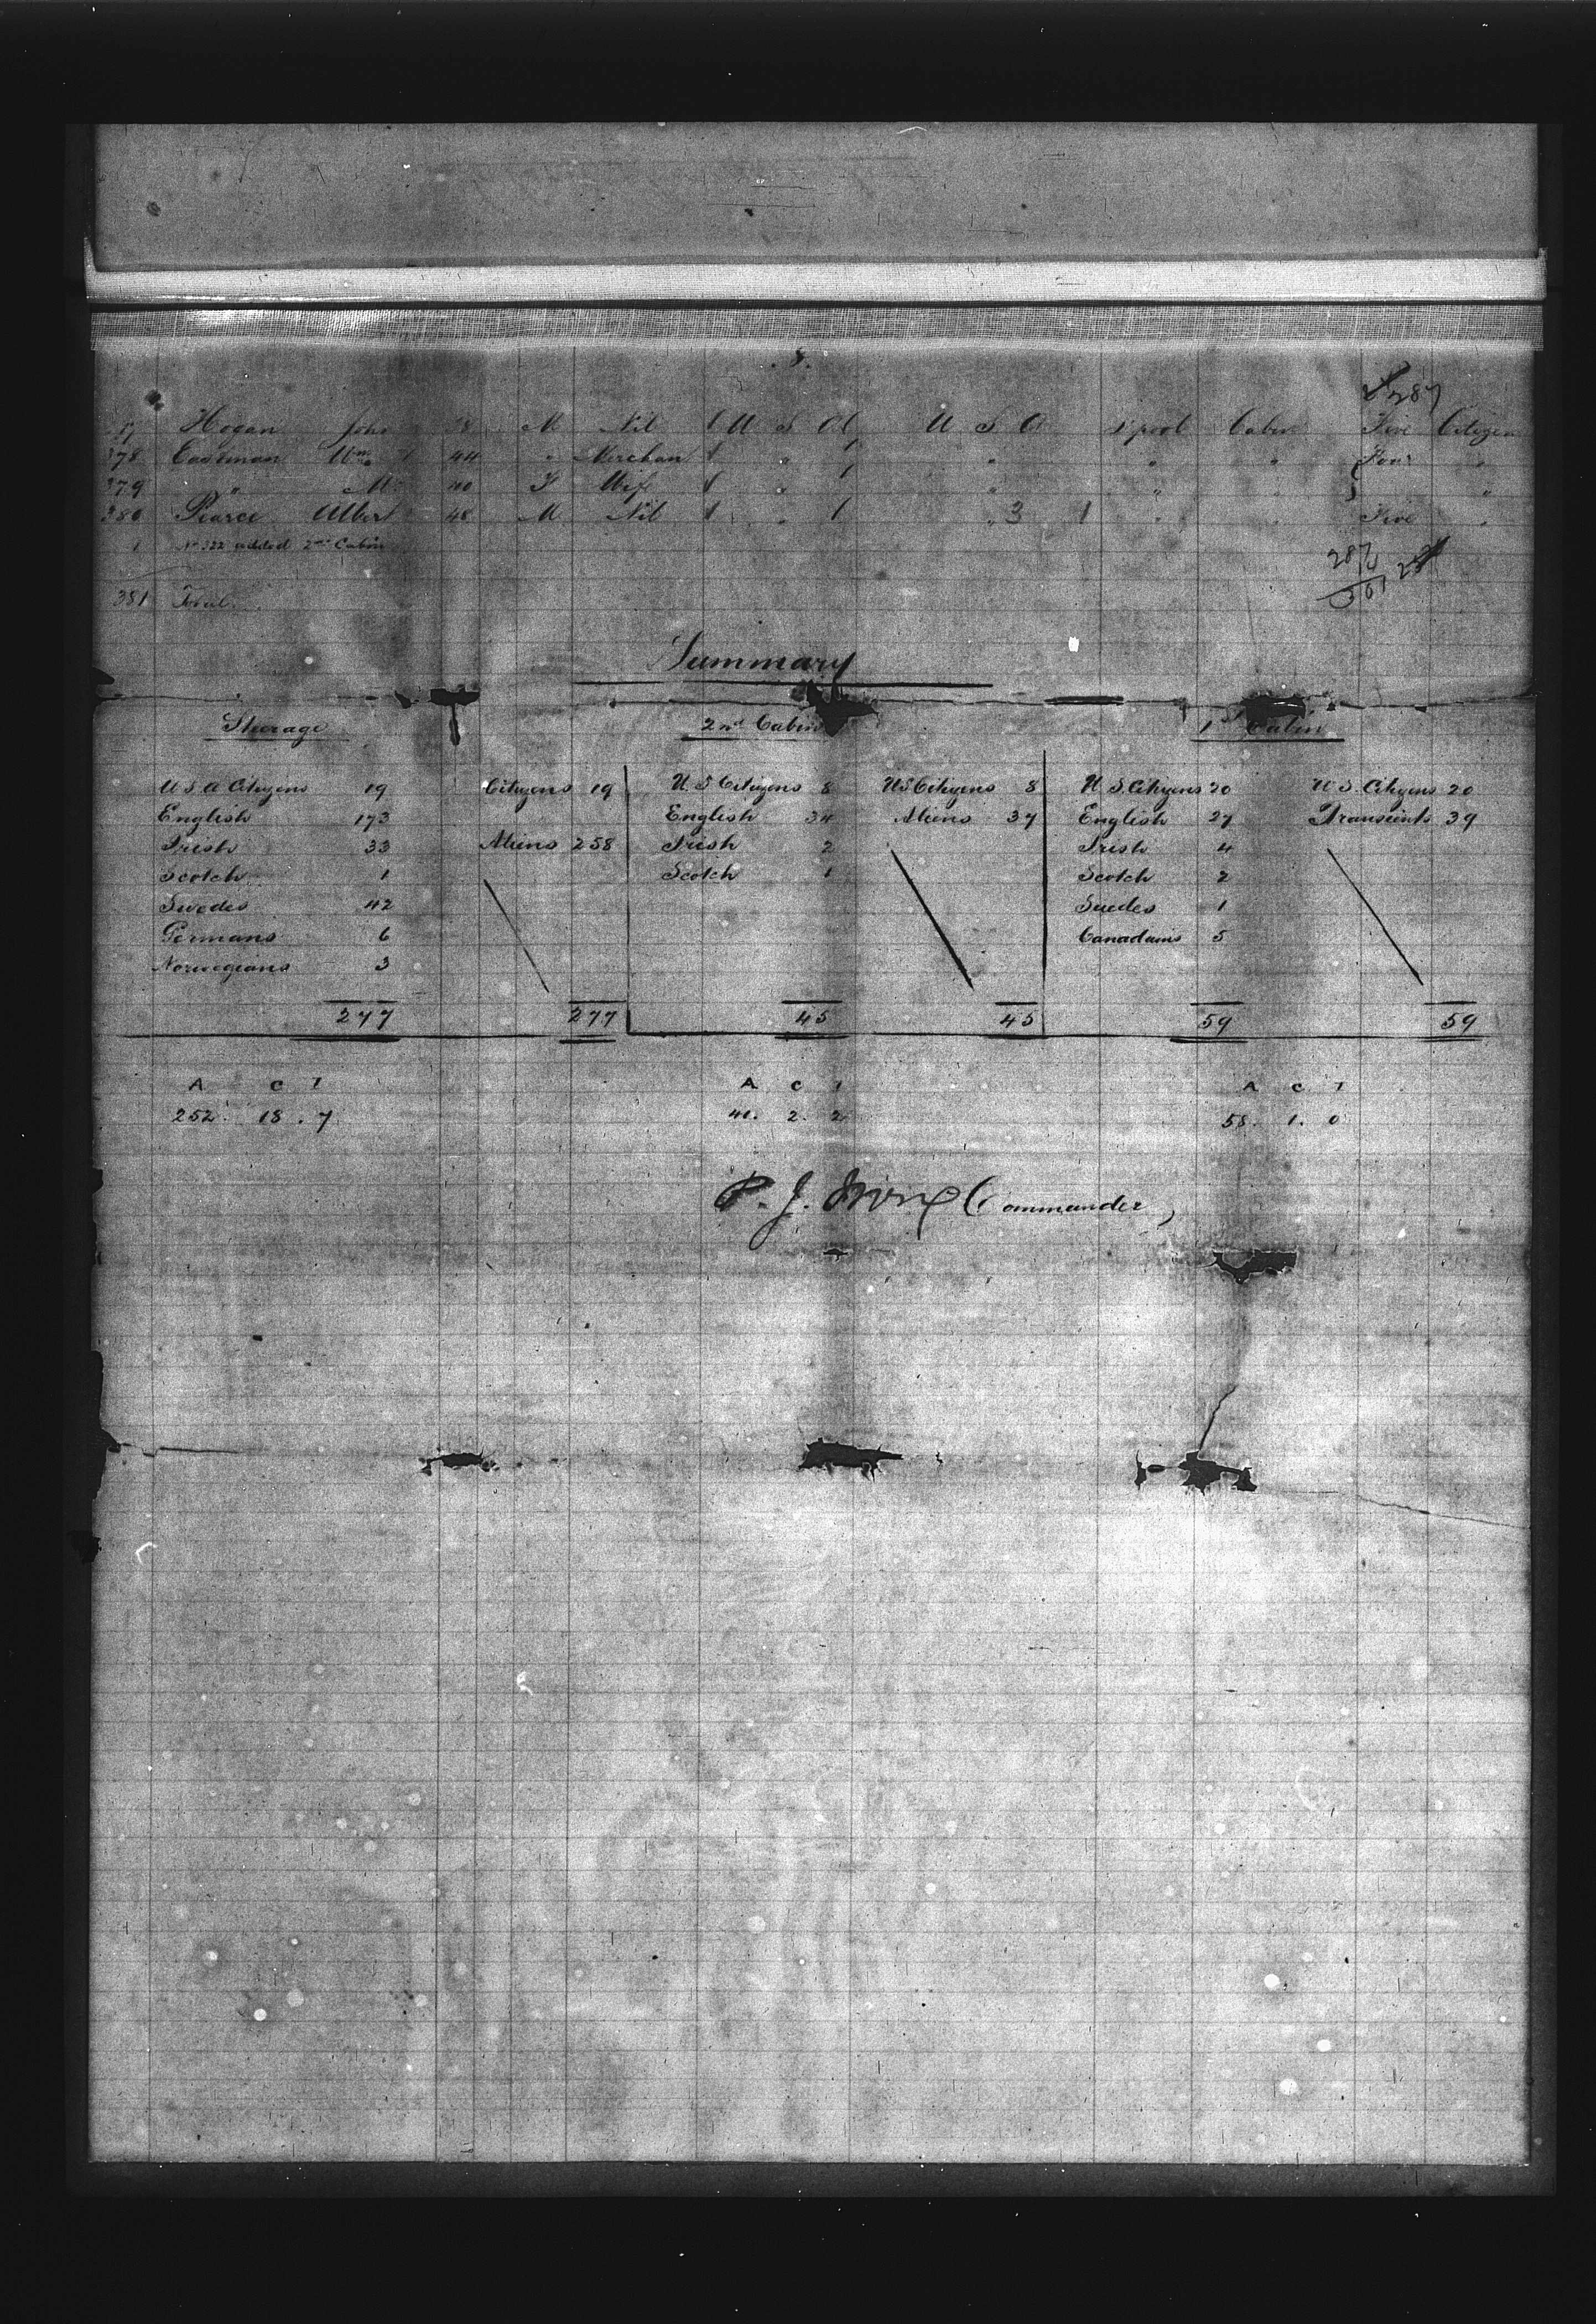 8.
287
Hogan John 38 M Nil 1 U S A 1 U S A L'pool Cabin Five Citizen
378 Eastman Wm 44 " Merchan 1 " 1 " " " Four "
379 " Mrs 40 F Wife 1 " 1 " " " "
380 Pearce Albert 48 M Nil 1 " 1 " 3 1 " " Five "
1 No 322 added 2nd Cabin
287
381 Total
Summary
Steerage 2nd Cabin 1st Cabin
U S A Citizens 19 Citizens 19 U. S Citizens 8 U.S. Citizens 8 U. S. Citizens 20 U. S. Citizens 20
English 173 English 34 Aliens 37 English 27 Transients 39
Irish 33 Aliens 258 Irish 2 Irish 4
Scotch 1 Scotch 1 Scotch 2
Swedes 42 Suedes 1
Germans 6 Canadians 5
Norwegians 3
277 277 45 45 59 59
A C I A C I A C I
252. 18. 7 41. 2. 2 58. 1. 0
P. J. Irving Commander